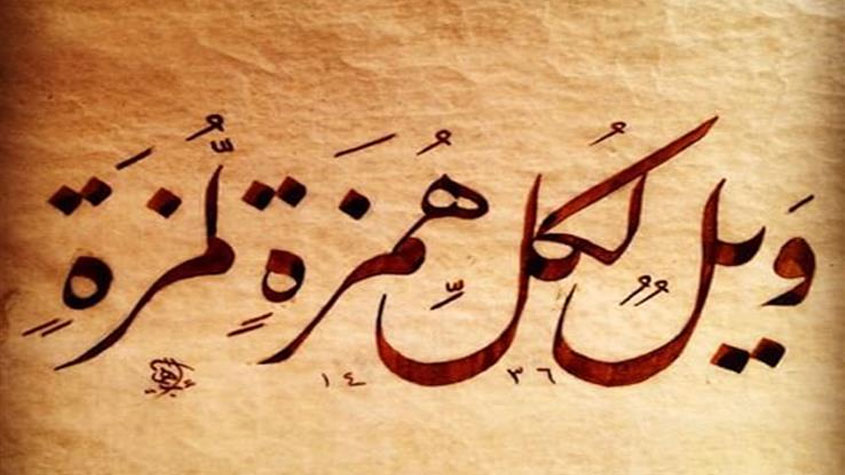 وَيْلٌ لِكُلِّ هُمَزَةٍ لُّمَزَةٍ
١٤٣٦